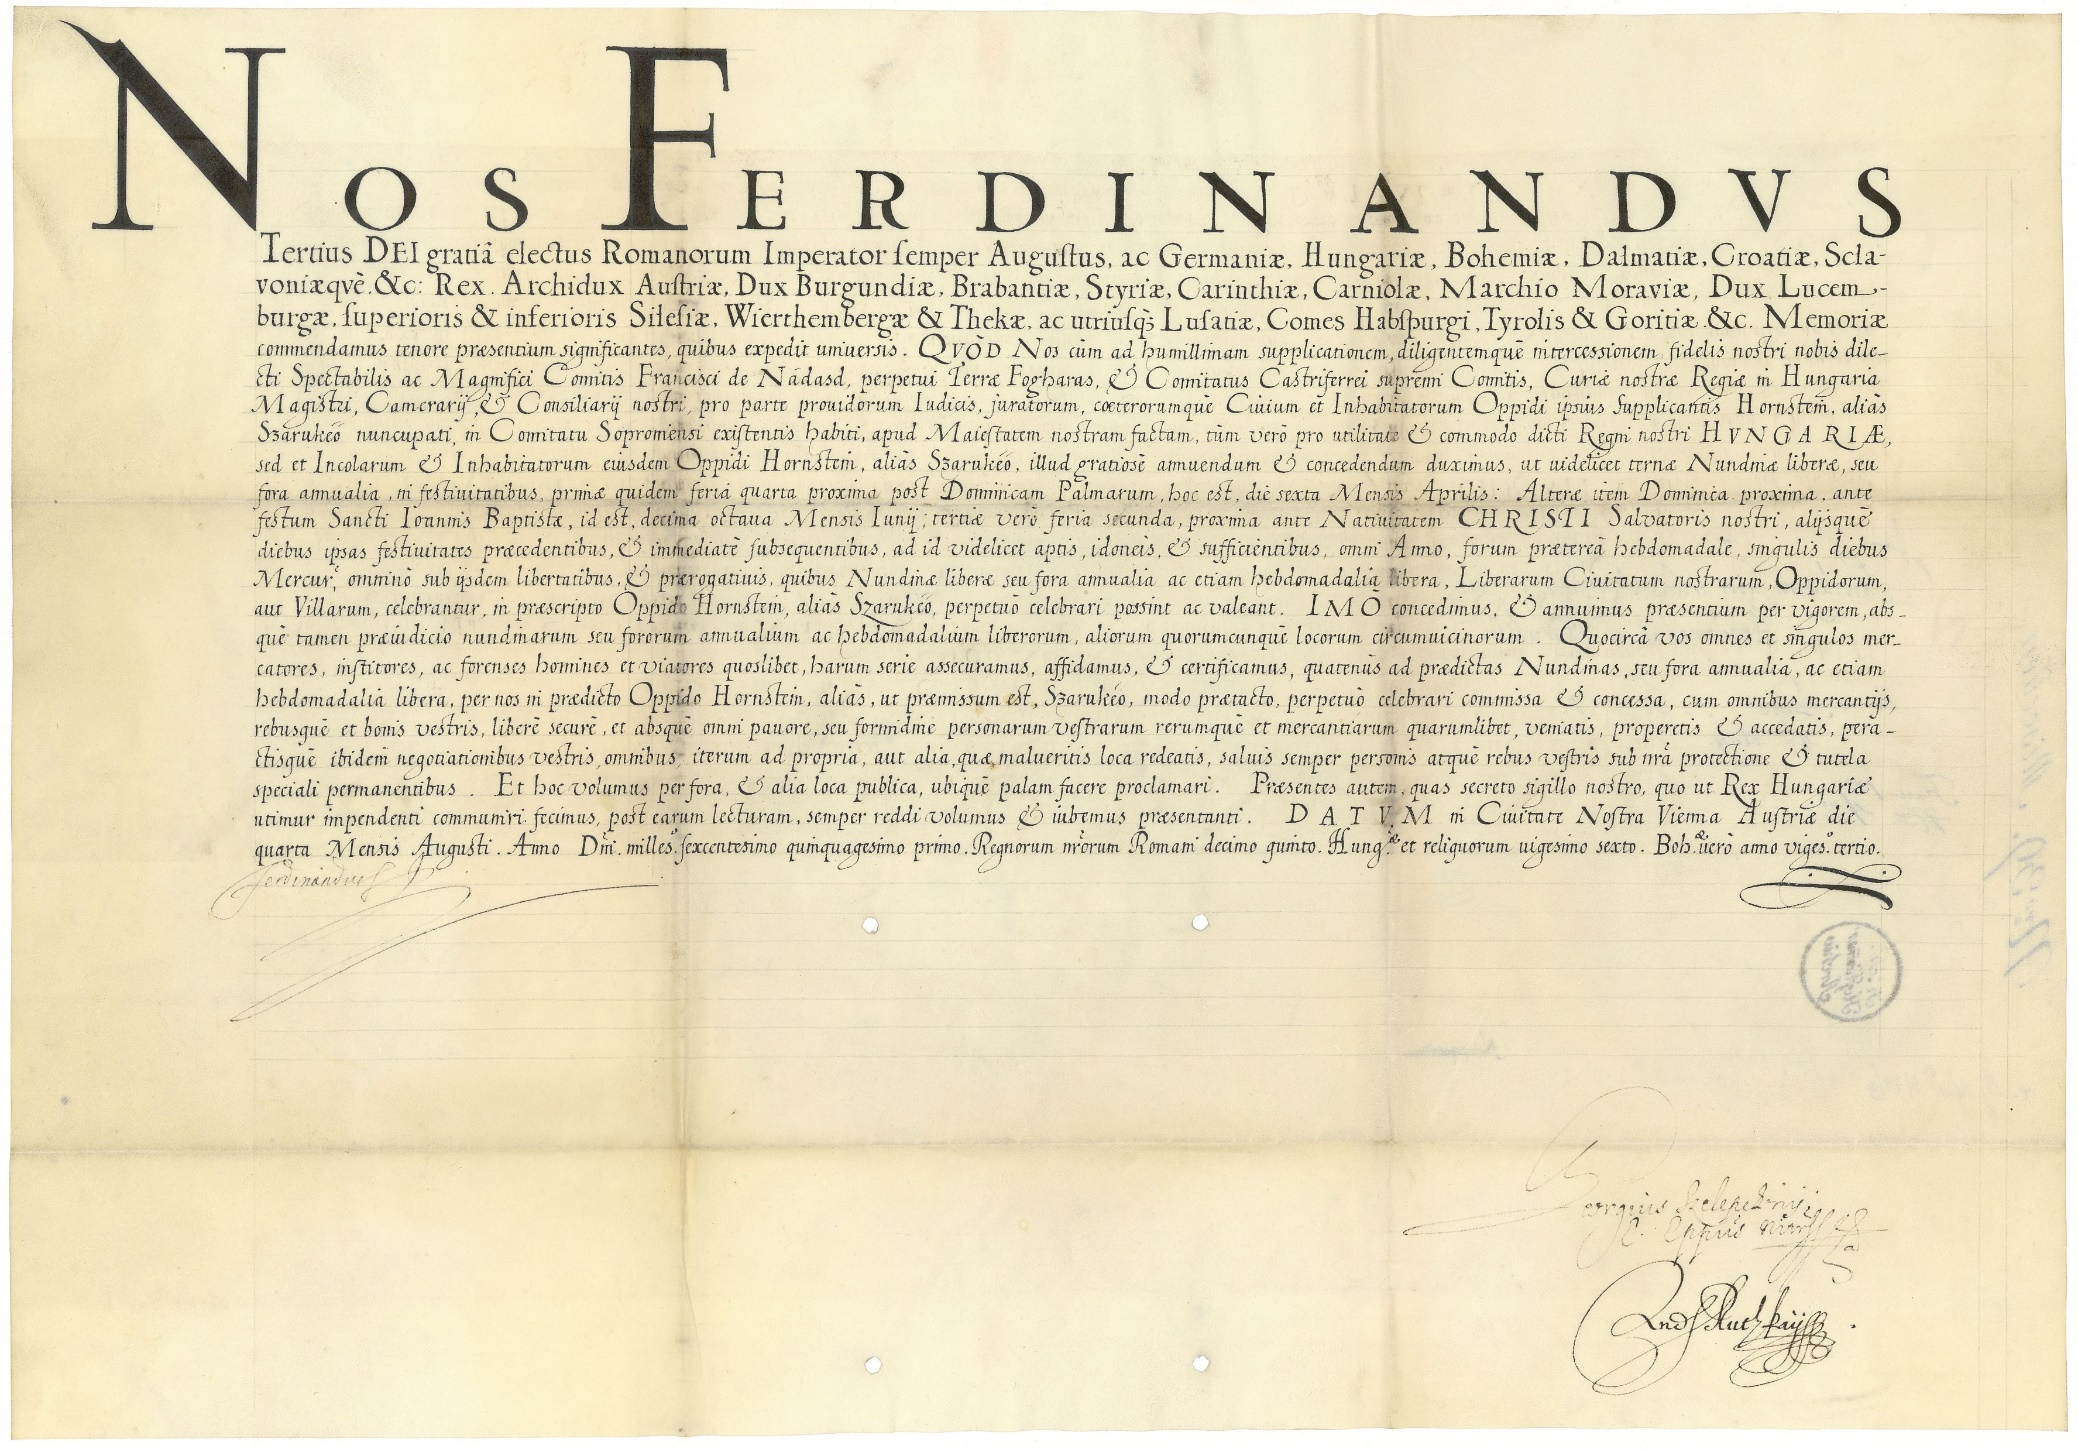 NOS FERDINANDVS
Tertius DEI gratiâ electus Romanorum Imperator semper Augustus, ac Germaniæ, Hungariæ, Bohemiæ, Dalmatiæ, Croatiæ, Scla-
voniæqvè.&c: Rex. Archidux Austriæ, Dux Burgundiæ, Brabantiæ, Styriæ, Carinthiæ, Carniolæ, Marchio Moraviæ, Dux Lucem-
burgæ, superioris & inferioris Silesiæ, Wierthembergæ & Thekæ, ac utriusq; Lusatiæ, Comes Habspurgi, Tyrolis & Goritiæ.&c. Memoriæ
commendamus tenore præsentium significantes, quibus expedit uniuersis. QVÒD Nos cùm ad humillimam supplicationem, diligentemquè intercessionem fidelis nostri nobis dile-
cti Spectabilis ac Magnifici Comitis Francisci de Nádasd, perpetui Terræ Fogharas, & Comitatus Castriferrei supremi Comitis, Curiæ nostræ Regiæ in Hungaria
Magistri, Camerarij, & Consiliarij nostri, pro parte prouidorum Iudicis, juratorum, cœterorumquè Ciuium et Inhabitatorum Oppidi ipsius supplicantis Hornstein, aliàs
Szarukéö nuncupati, in Comitatu Soproniensi existentis habiti, apud Maiestatem nostram factam, tùm verò pro utilitate & commodo dicti Regni nostri HVNGARIÆ,
sed et Incolarum & Inhabitatorum eiusdem Oppidi Hornstein, aliàs Szarukéo, illud gratiosè annuendum & concedendum duximus, ut uidelicet ternæ Nundinæ liberæ, seu
fora annualia, in festiuitatibus, primæ quidem feria quarta proxima post Dominicam Palmarum, hoc est, die sexta Mensis Aprilis: Alteræ item Dominica proxima, ante
festum Sancti Ioannis Baptistæ, id est, decima octaua Mensis Iunij; tertiæ verò feria secunda, proxima ante Natiuitatem CHRISTI Salvatoris nostri, alijsquè
diebus ipsas festiuitates præcedentibus, & immediatè subsequentibus, ad id videlicet aptis, idoneis, & sufficientibus, omni Anno, forum prætereà hebdomadale, singulis diebus
Mercur, omninò sub ijsdem libertatibus, & prærogatiuis, quibus Nundinæ liberæ seu fora annualia ac etiam hebdomadalia libera, Liberarum Ciuitatum nostrarum, Oppidorum,
aut Villarum, celebrantur, in præscripto Oppido Hornstein, aliàs Szarukéo, perpetuò celebrari possint ac valeant. IMÒ concedimus, & annuimus præsentium per vigorem, abs-
què tamen præiudicio nundinarum seu fororum annualium ac hebdomadalium liberorum, aliorum quorumcunquè locorum circumuicinorum. Quocircà vos omnes et singulos mer-
catores, institores, ac forenses homines et viatores quoslibet, harum serie assecuramus, affidamus, & certificamus, quatenùs ad prædictas Nundinas, seu fora annualia, ac etiam
hebdomadalia libera, per nos in prædicto Oppido Hornstein, aliàs, ut præmissum est, Szarukéo, modo prætacto, perpetuò celebrari commissa & concessa, cum omnibus mercantijs,
rebusquè et bonis vestris, liberè securè, et absquè omni pauore, seu formidine personarum vestrarum rerumquè et mercantiarum quarumlibet, veniatis, properetis & accedatis, pera-
ctisquè ibidem negotiationibus vestris omnibus, iterum ad propria, aut alia, quæ malueritis loca redeatis, saluis semper personis atquè rebus vestris sub nrâ protectione & tutela
speciali permanentibus. Et hoc volumus per fora, & alia loca publica, ubiquè palam facere proclamari. Præsentes autem, quas secreto sigillo nostro, quo ut Rex Hungariæ
utimur impendenti communiri fecimus, post earum lecturam, semper reddi volumus & iubemus præsentanti. DATVM in Ciuitate Nostra Vienna Austriæ die
quarta Mensis Augusti. Anno Dni. milles.º sexcentesimo quinquagesimo primo. Regnorum nrorum Romani decimo quinto. Hung.æ et reliquorum uigesimo sexto. Boh.æ uerò anno viges.º tertio.
Ferdinandus
Georgius Szelepchiny
E. Eppus Nitr